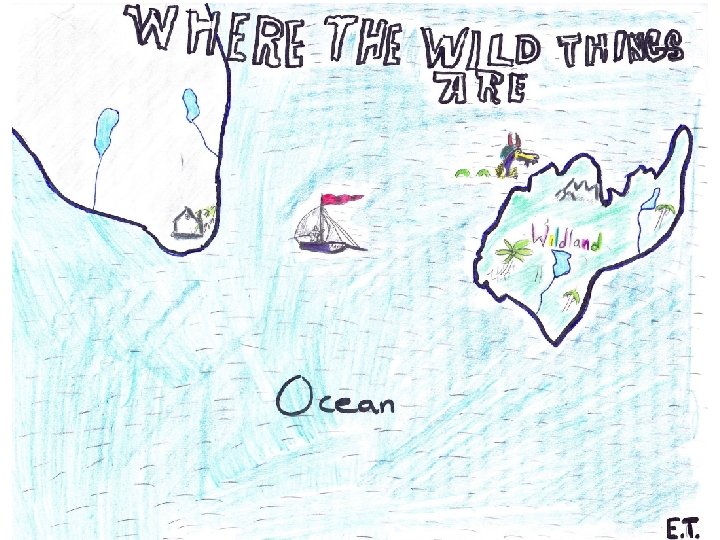 WHERE THE WILD THINGS
ARE
Wildland
Ocean
E.T.